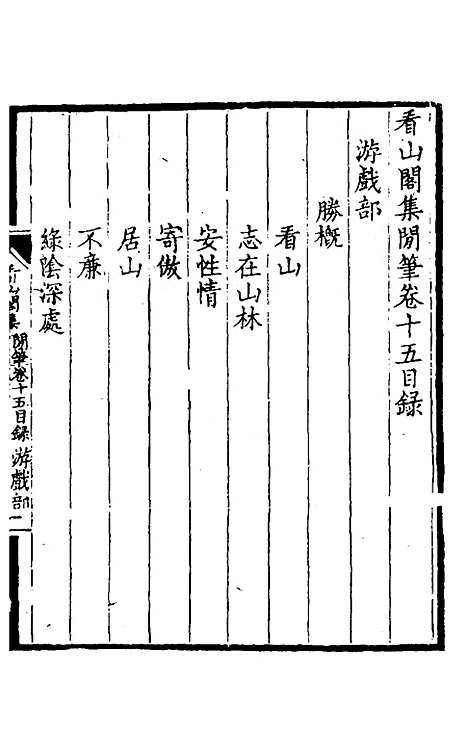 看山閣集閒筆卷十五目録
游戲部
勝概
看山
志在山林
安性情
寄傲
居山
不廉
緑陰深處
看山閣集 閒筆卷十五目録 游戲部 一